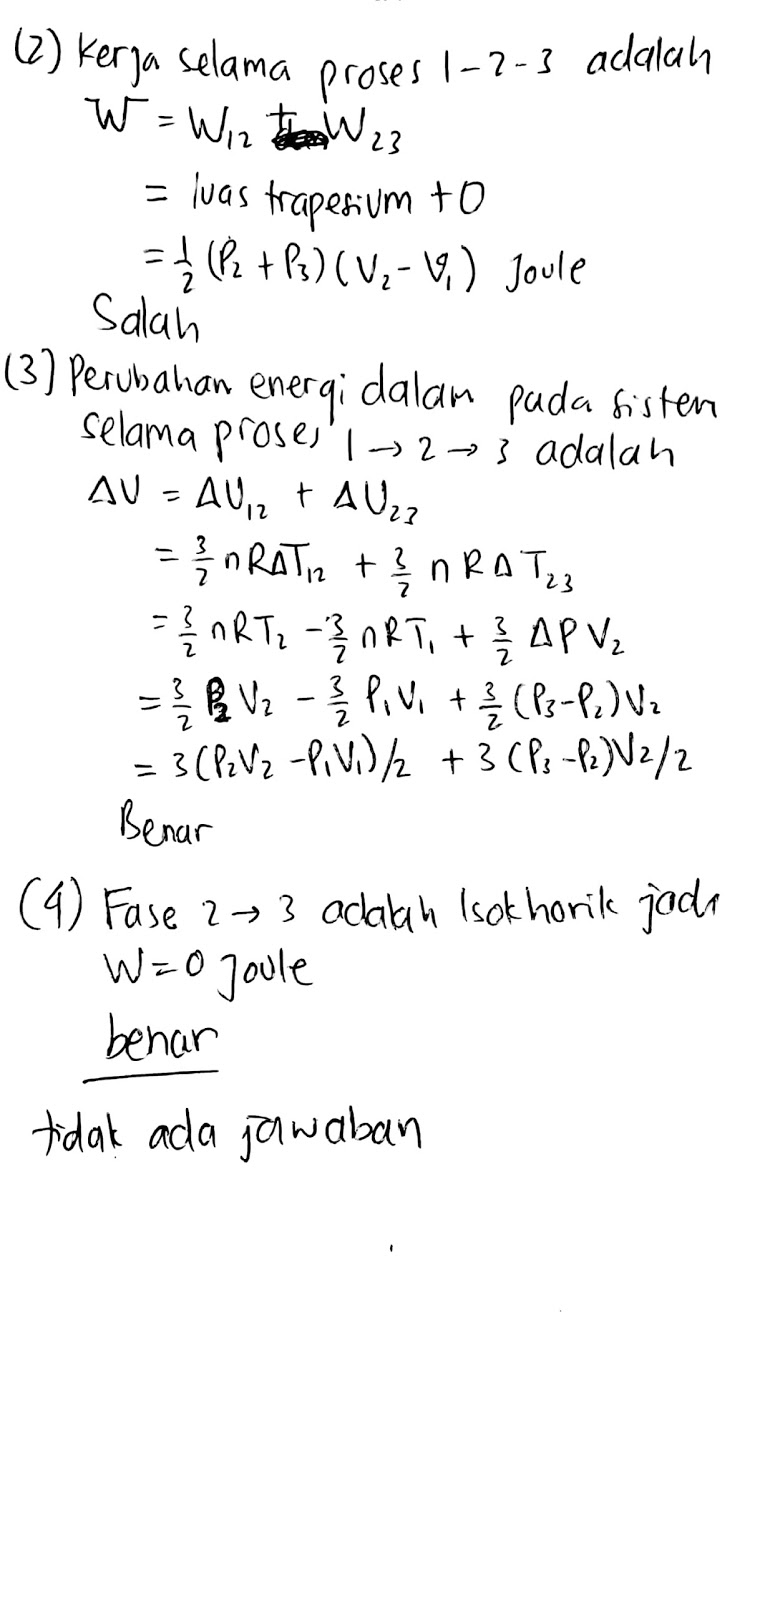 (2) Kerja selama proses 1-2-3 adalah
W = W12 + W23
= luas trapesium + 0
= 1/2 (P2 + P3) (V2 - V1) Joule
Salah
(3) Perubahan energi dalam pada sistem
selama proses 1 → 2 → 3 adalah
ΔU = ΔU12 + ΔU23
= 3/2 nRΔT12 + 3/2 nRΔT23
= 3/2 nRT2 - 3/2 nRT1 + 3/2 ΔPV2
= 3/2 P2V2 - 3/2 P1V1 + 3/2 (P3-P2)V2
= 3(P2V2 - P1V1)/2 + 3(P3-P2)V2/2
Benar
(4) Fase 2 → 3 adalah Isokhorik jadi
W = 0 Joule
benar
tidak ada jawaban